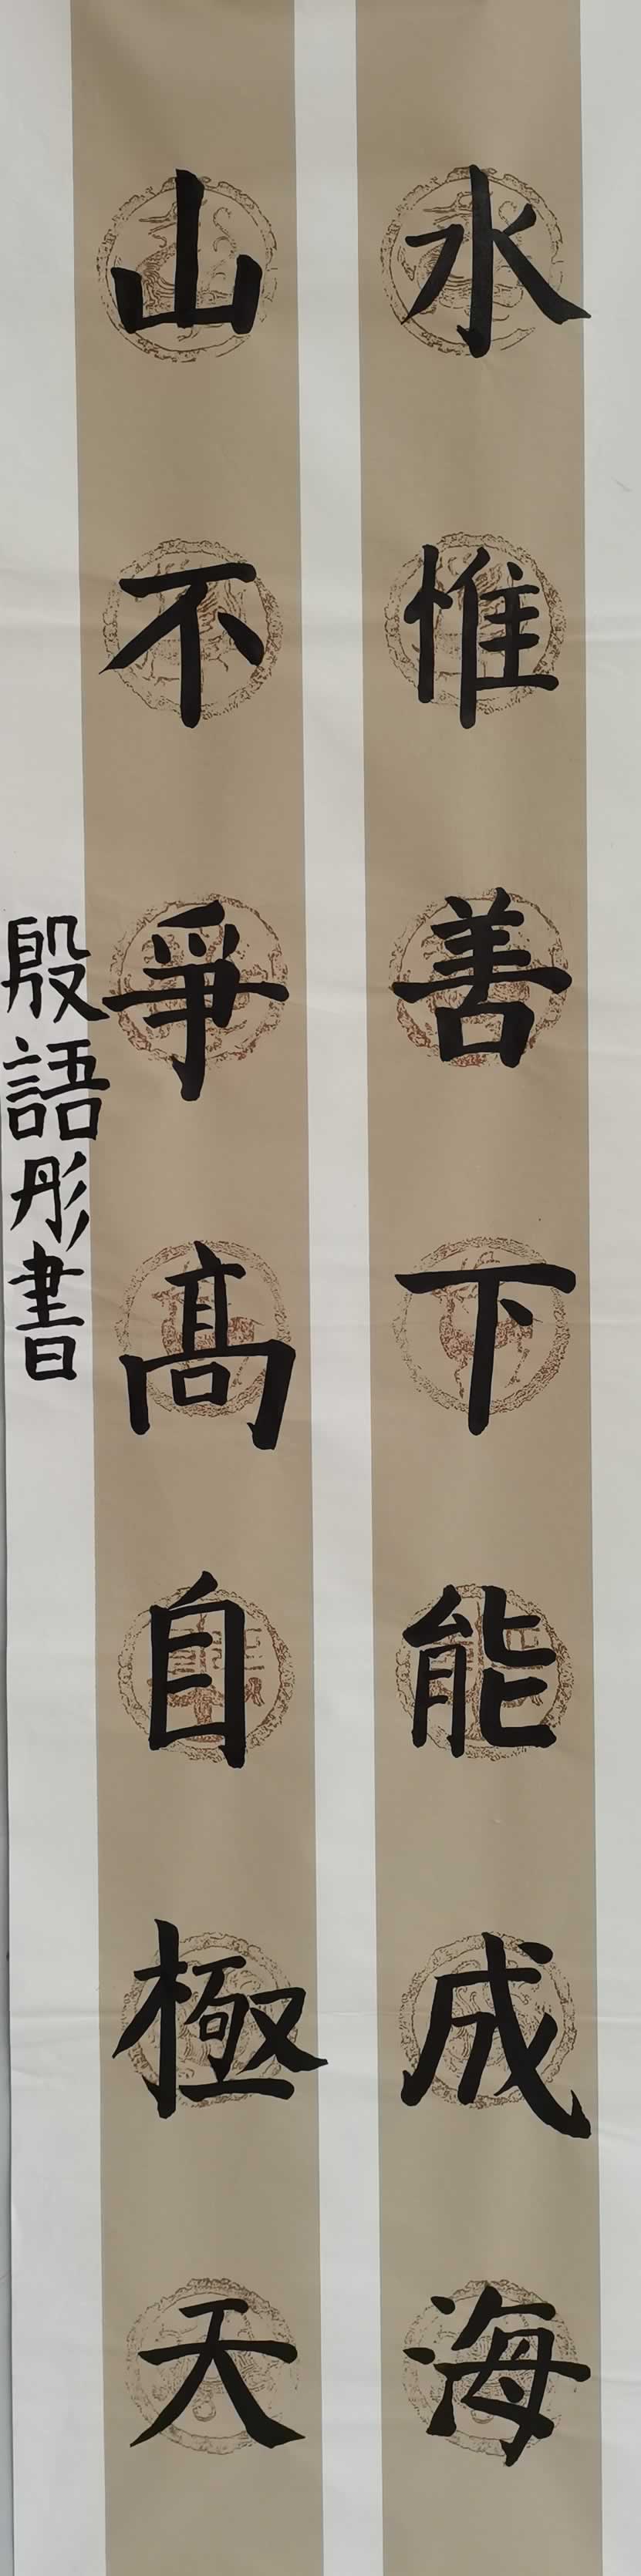 水惟善下能成海
山不爭高自極天
殷語彤書